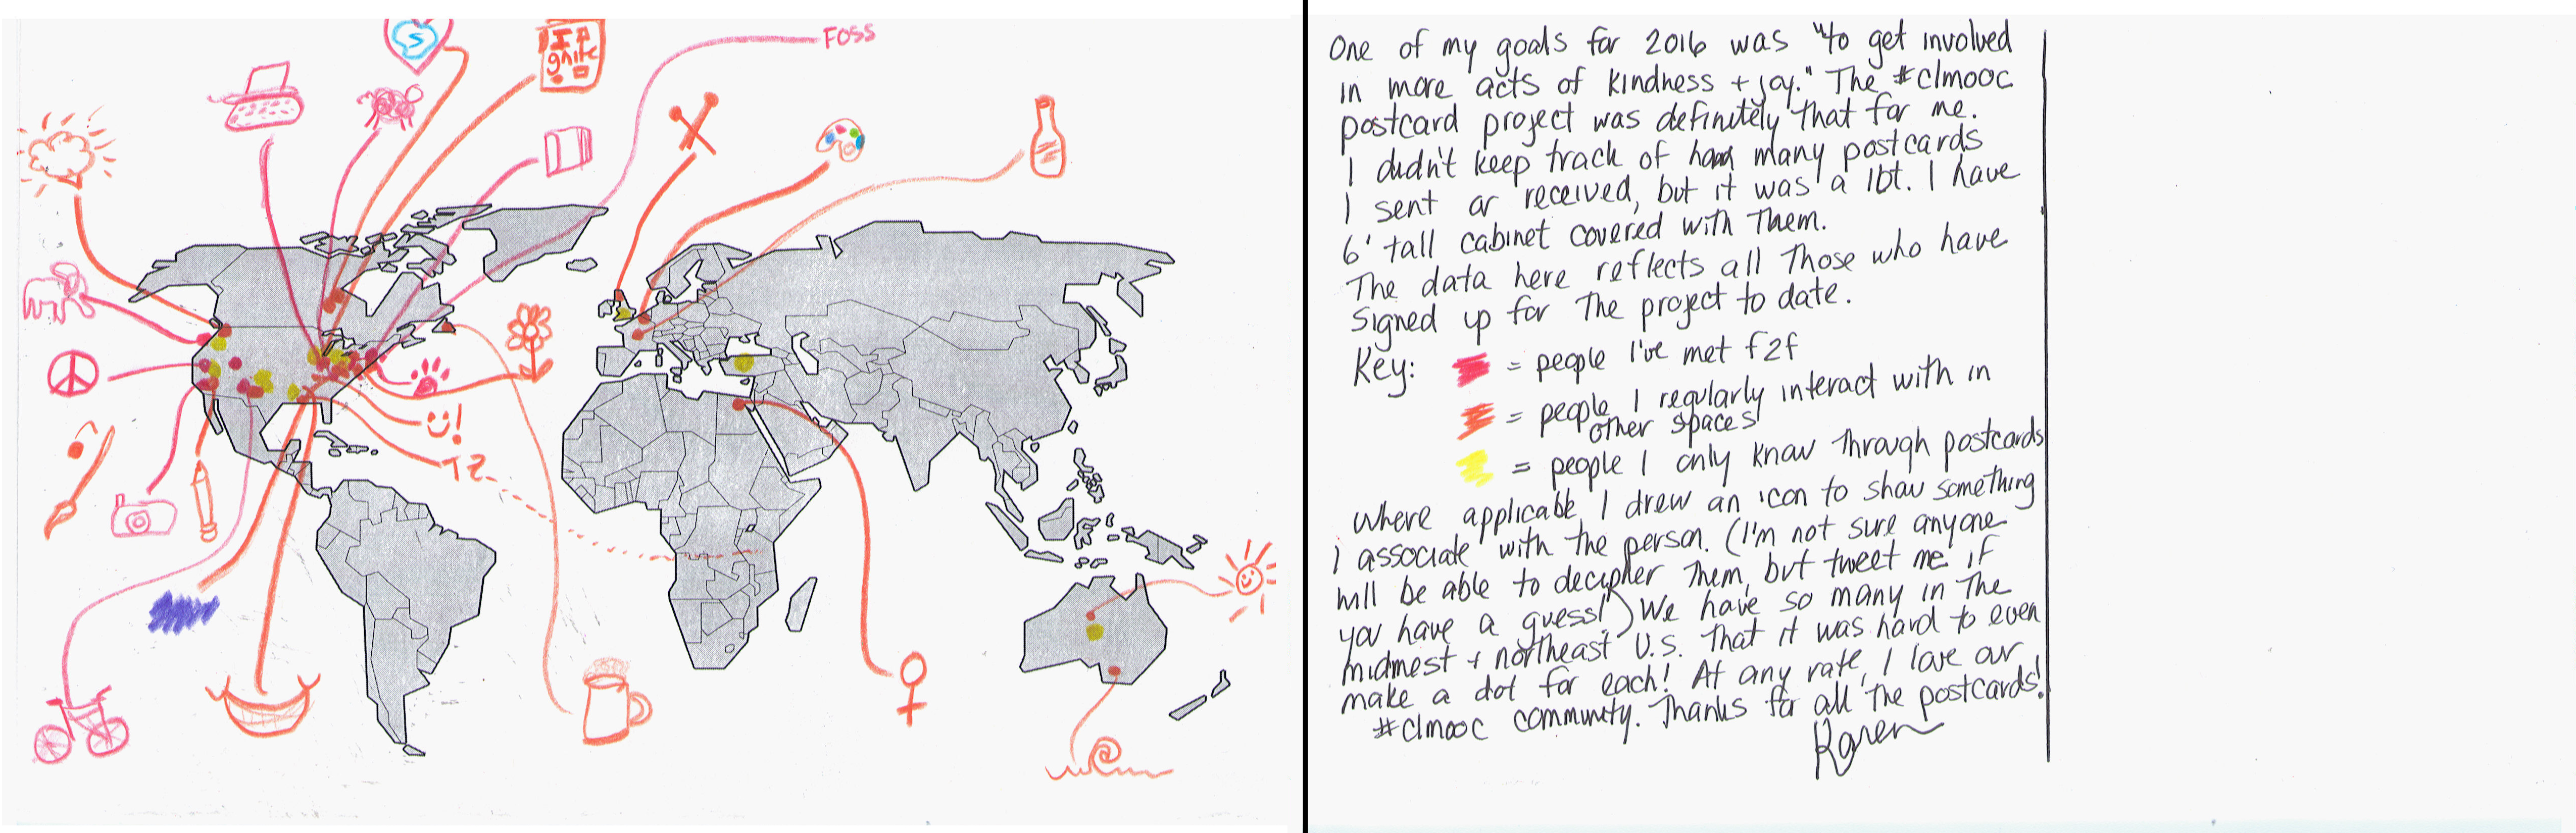 FOSS
S
I
gnite
T2
One of my goals for 2016 was "to get involved
in more acts of kindness + joy." The #clmooc
postcard project was definitely that for me.
I didn't keep track of how many postcards
I sent or received, but it was a lot. I have
6' tall cabinet covered with them.
The data here reflects all those who have
signed up for the project to date.
Key: = people I've met f2f
= people I regularly interact with in
other spaces
= people I only know through postcards
Where applicable I drew an icon to show something
I associate with the person. (I'm not sure anyone
will be able to decipher them, but tweet me if
you have a guess!) We have so many in the
midwest + northeast U.S. that it was hard to even
make a dot for each! At any rate, I love our
#clmooc community. Thanks for all the postcards!
Karen